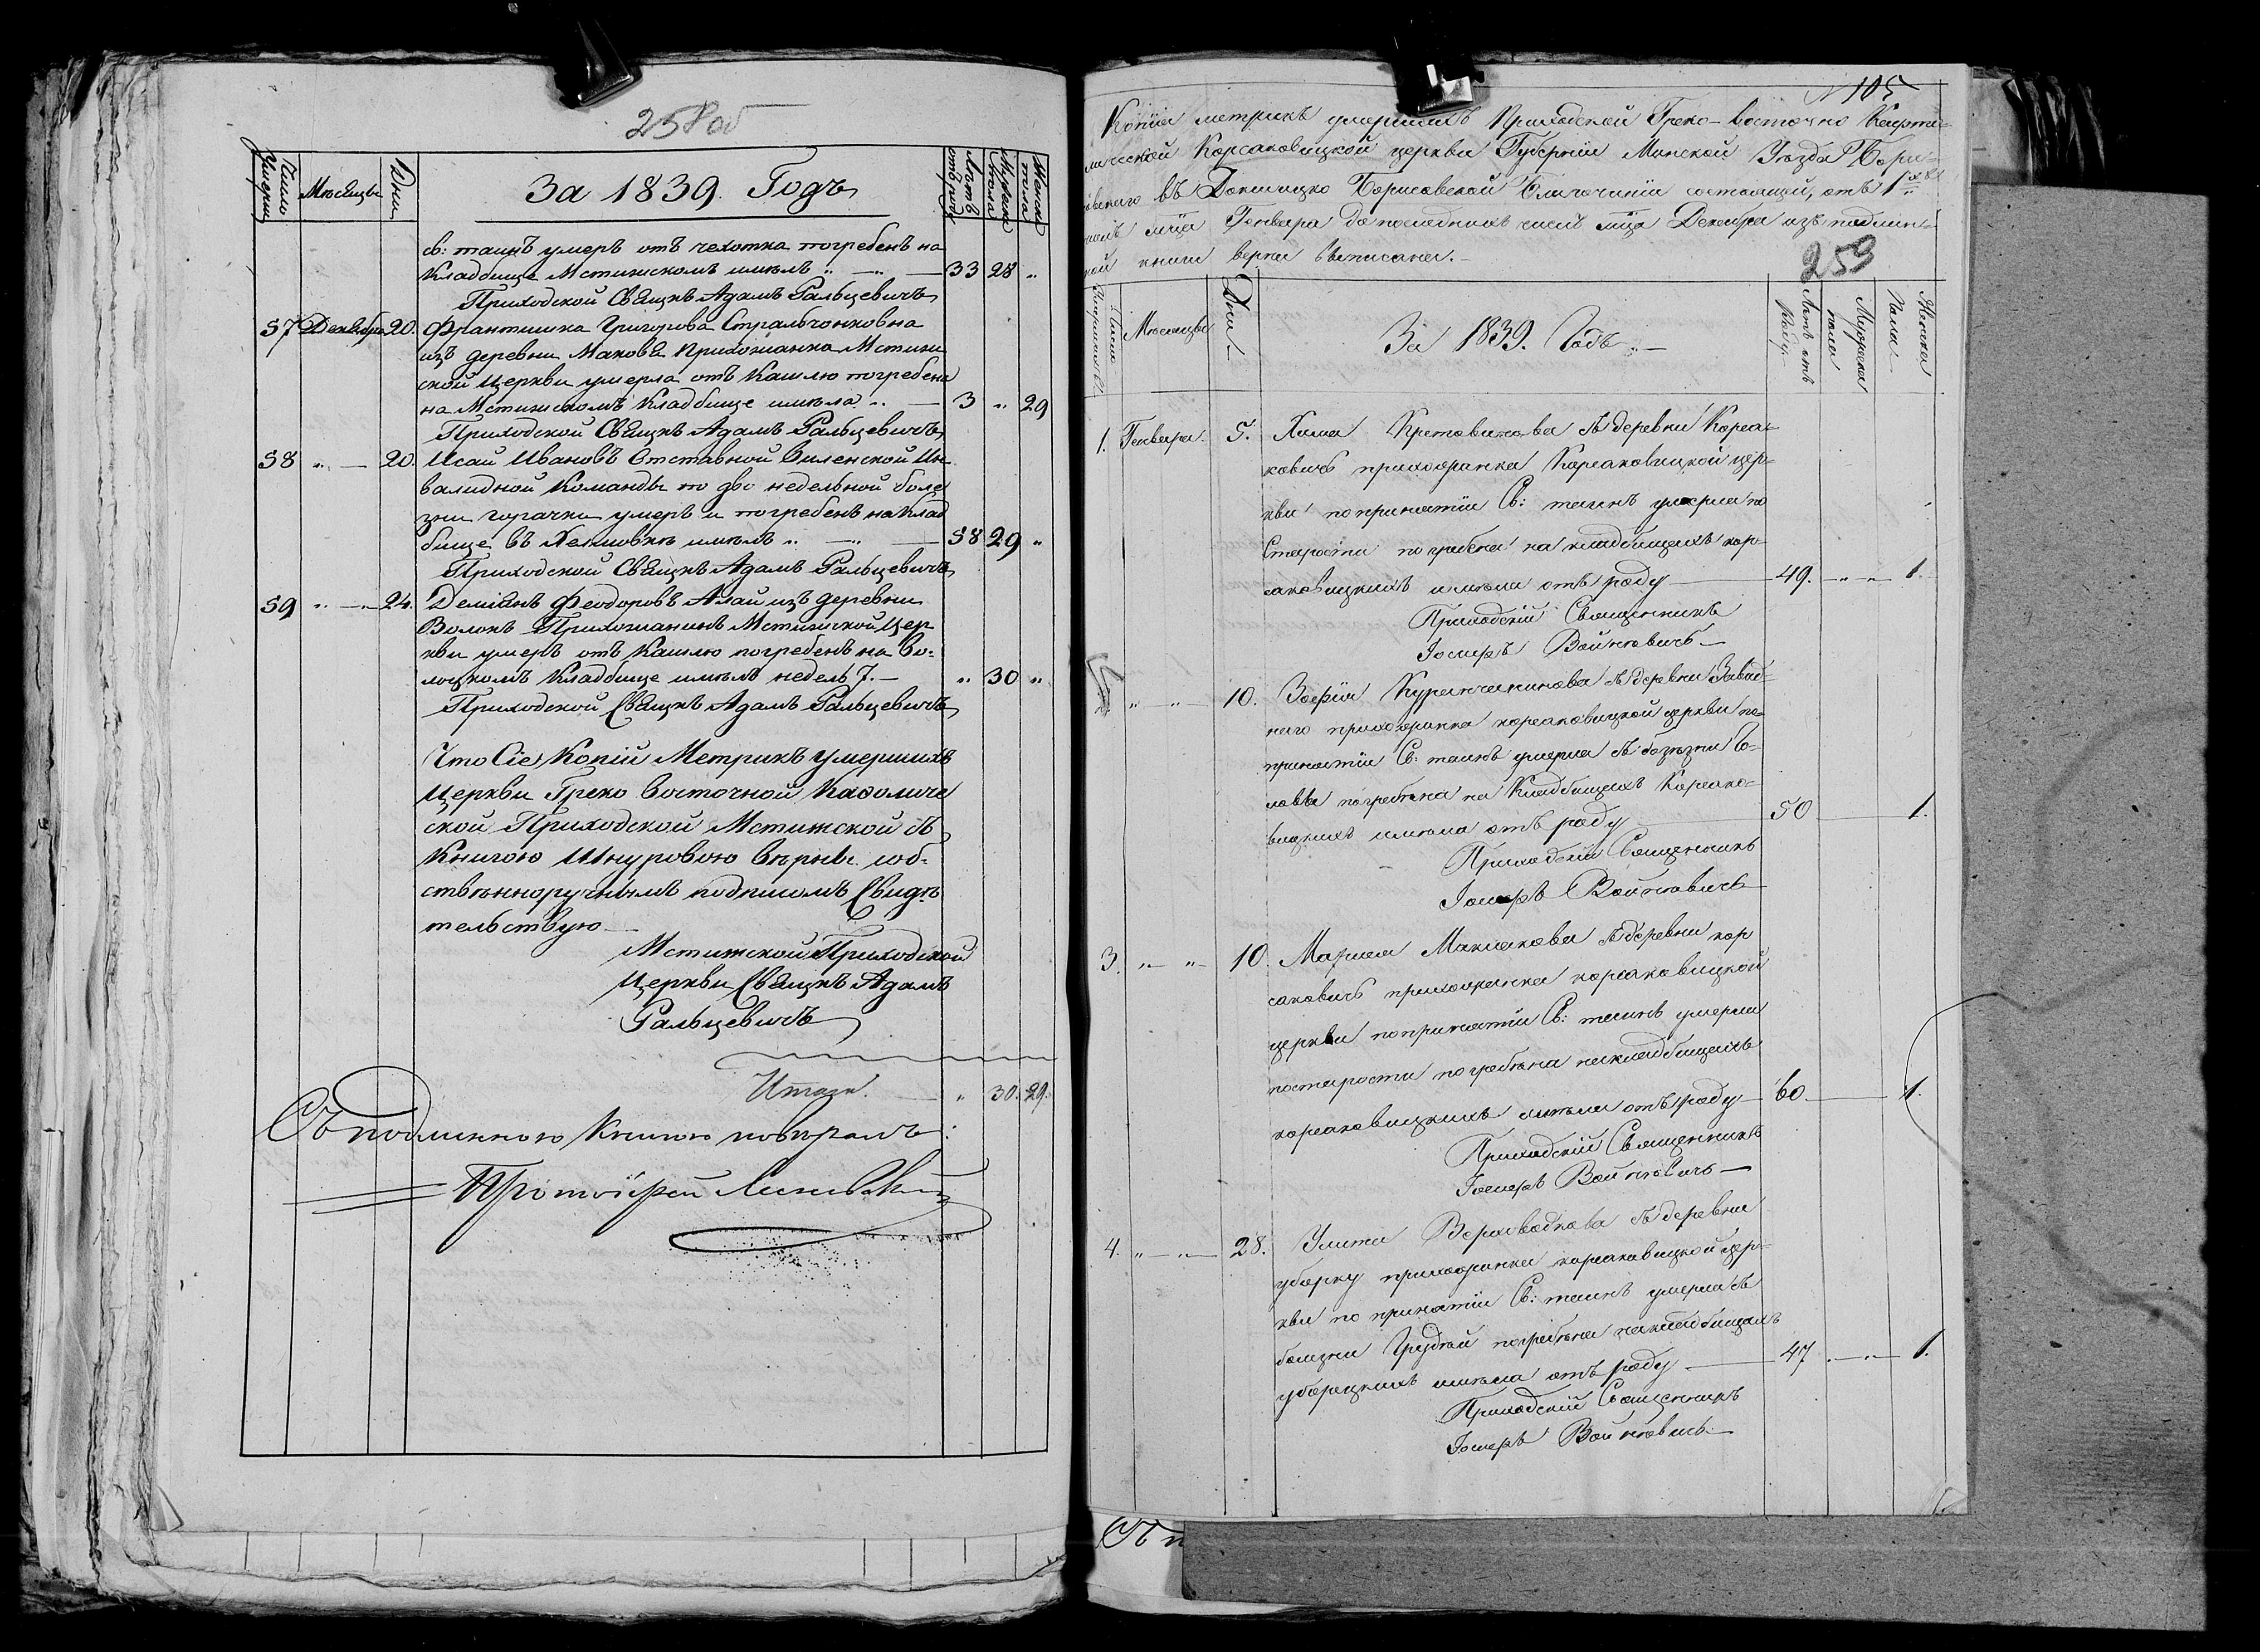 258 об
Число Умерш.
Месяцы
Дни
За 1839. Годъ
Летъ отъ роду
Мужеска пола
Женска пола
св: таинъ умеръ отъ чехотка погребенъ на
Кладбище Мстижскомъ имелъ „ — „ — 33 28 „
Приходской Свящнъ Адамъ Ральцевичъ
57 Декабра 20. Франтишка Григорова Стральчонковна
изъ деревни Маковя Прихожанка Мстиж
ской Церкви умерла отъ Кашлю погребена
на Мстижскомъ Кладбище имела .. — 3 „ 29
Приходской Свящнъ Адамъ Ральцевичъ
58 „ — 20. Исай Ивановъ Отставной Виленской Ин
валидной Команды по дво недельной боле
зни горачки умеръ и погребенъ на Клад
бище въ имелъ „ — „ — 58 29 „
Приходской Свящнъ Адамъ Ральцевичъ
59 „ — „ 24. Деміянъ Феодоровъ изъ деревни
Волокъ Прихожанинъ Мстижской Цер
кви умеръ отъ Кашлю погребенъ на Во-
лоцкомъ Кладбище имелъ недель 7. — „ 30 „
Приходской Свящнъ Адамъ Ральцевичъ
Что Сіе Копій Метрикъ Умершихъ
Церкви Греко Восточной Каѳоличе
ской Приходской Мстижской съ
Книгою Шнуровою верны соб-
ственноручнымъ подписомъ Свиде
тельствую
Мстижской Приходской
Церкви Свящнъ Адамъ
Ральцевичъ
Итого. — „ 30. 29.
Съ подлинною Книгою поверялъ:
Протоіерей
№ 105
Копія метрикъ умершихъ Приходской Греко-Восточно
Корсаковицкой церкви Губерніи Минской Уезда Бори-
въ Докшицко Борисовской Благочиніи состоящей, отъ 1
мца Генвара до последнихъ чиселъ мца Декабра изъ подлин-
ной книги верна выписана. —
259
Число
Месяцы
Дни
За 1839. Годъ. —
Летъ отъ роду
Мужска пола
Женска пола
1. Генвара. 5. съ деревни Корса-
ковичъ прихожанка Корсаковицкой цер-
кви по принятіи Св: таинъ умерла по
Старости погребена на кладбищахъ кор-
саковицкихъ имела отъ роду — 49. — „ — 1.
Приходскій Священникъ
Іосифъ Войнювичъ —
„ — „ — 10. Зофія съ деревни Завад-
наго прихожанка корсаковицкой церкви по
принятіи Св: таинъ умерла съ болезни Го-
ловы погребена на Кладбищахъ Корсако-
вицкихъ имела отъ роду — 50 — 1.
Приходскій Священникъ
Іосифъ Войнювичъ
3. „ — „ — 10. Марья съ деревни кор
саковичъ прихожанка корсаковицкой
церкви по принятіи Св: таинъ умерла
по старости погребена на кладбищахъ
корсаковицкихъ имела отъ роду — 60. — 1.
Приходскій Священникъ
Іосифъ Войнювичъ —
4. „ — „ — 28. Улита Верховодкова съ деревни
уборку прихожанка корсаковицкой цер-
кви по принятіи Св: таинъ умерла съ
болезни Грудной погребена на кладбищахъ
уборецкихъ имела отъ роду — 47 — „ — 1.
Приходскій Священникъ
Іосифъ Войнювичъ —